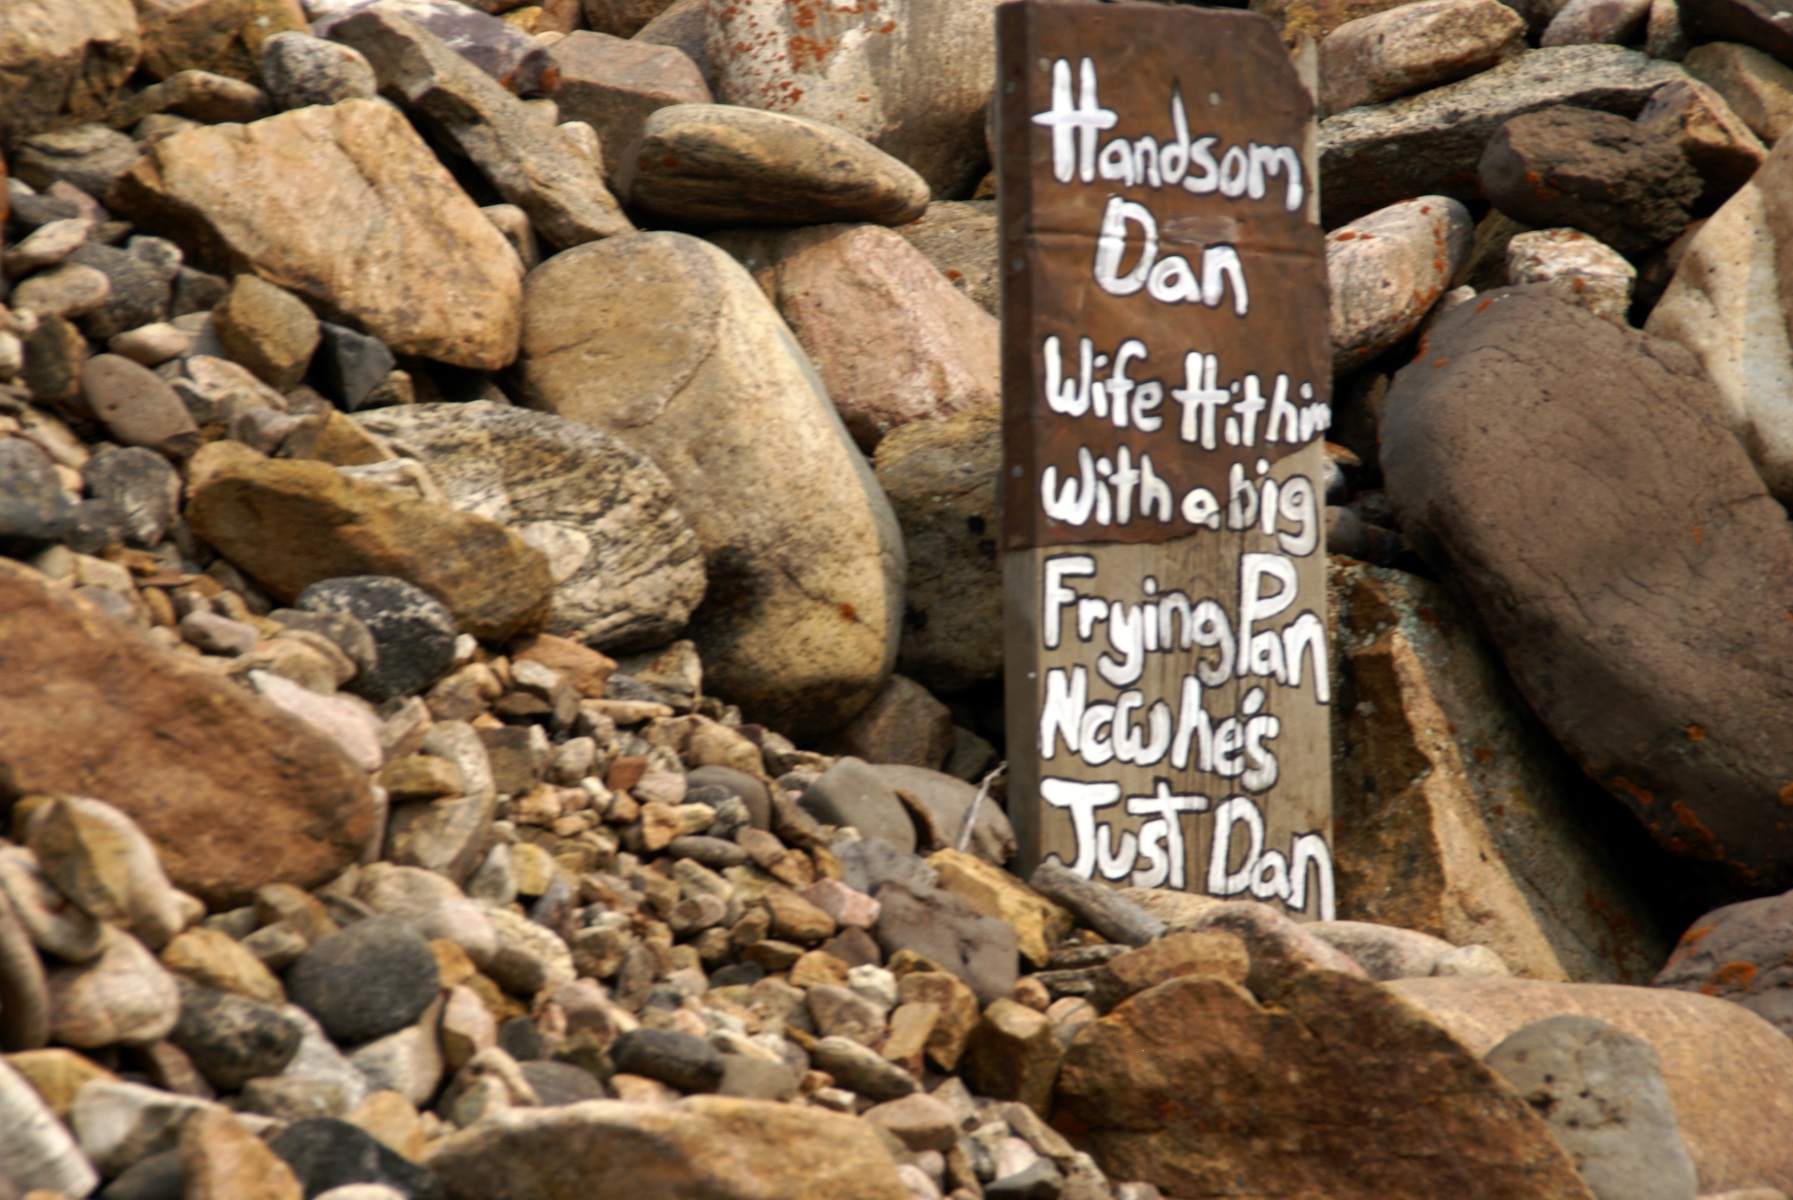 Handsom
Dan
Wife Hit him
with a big
Frying Pan
Now he's
Just Dan